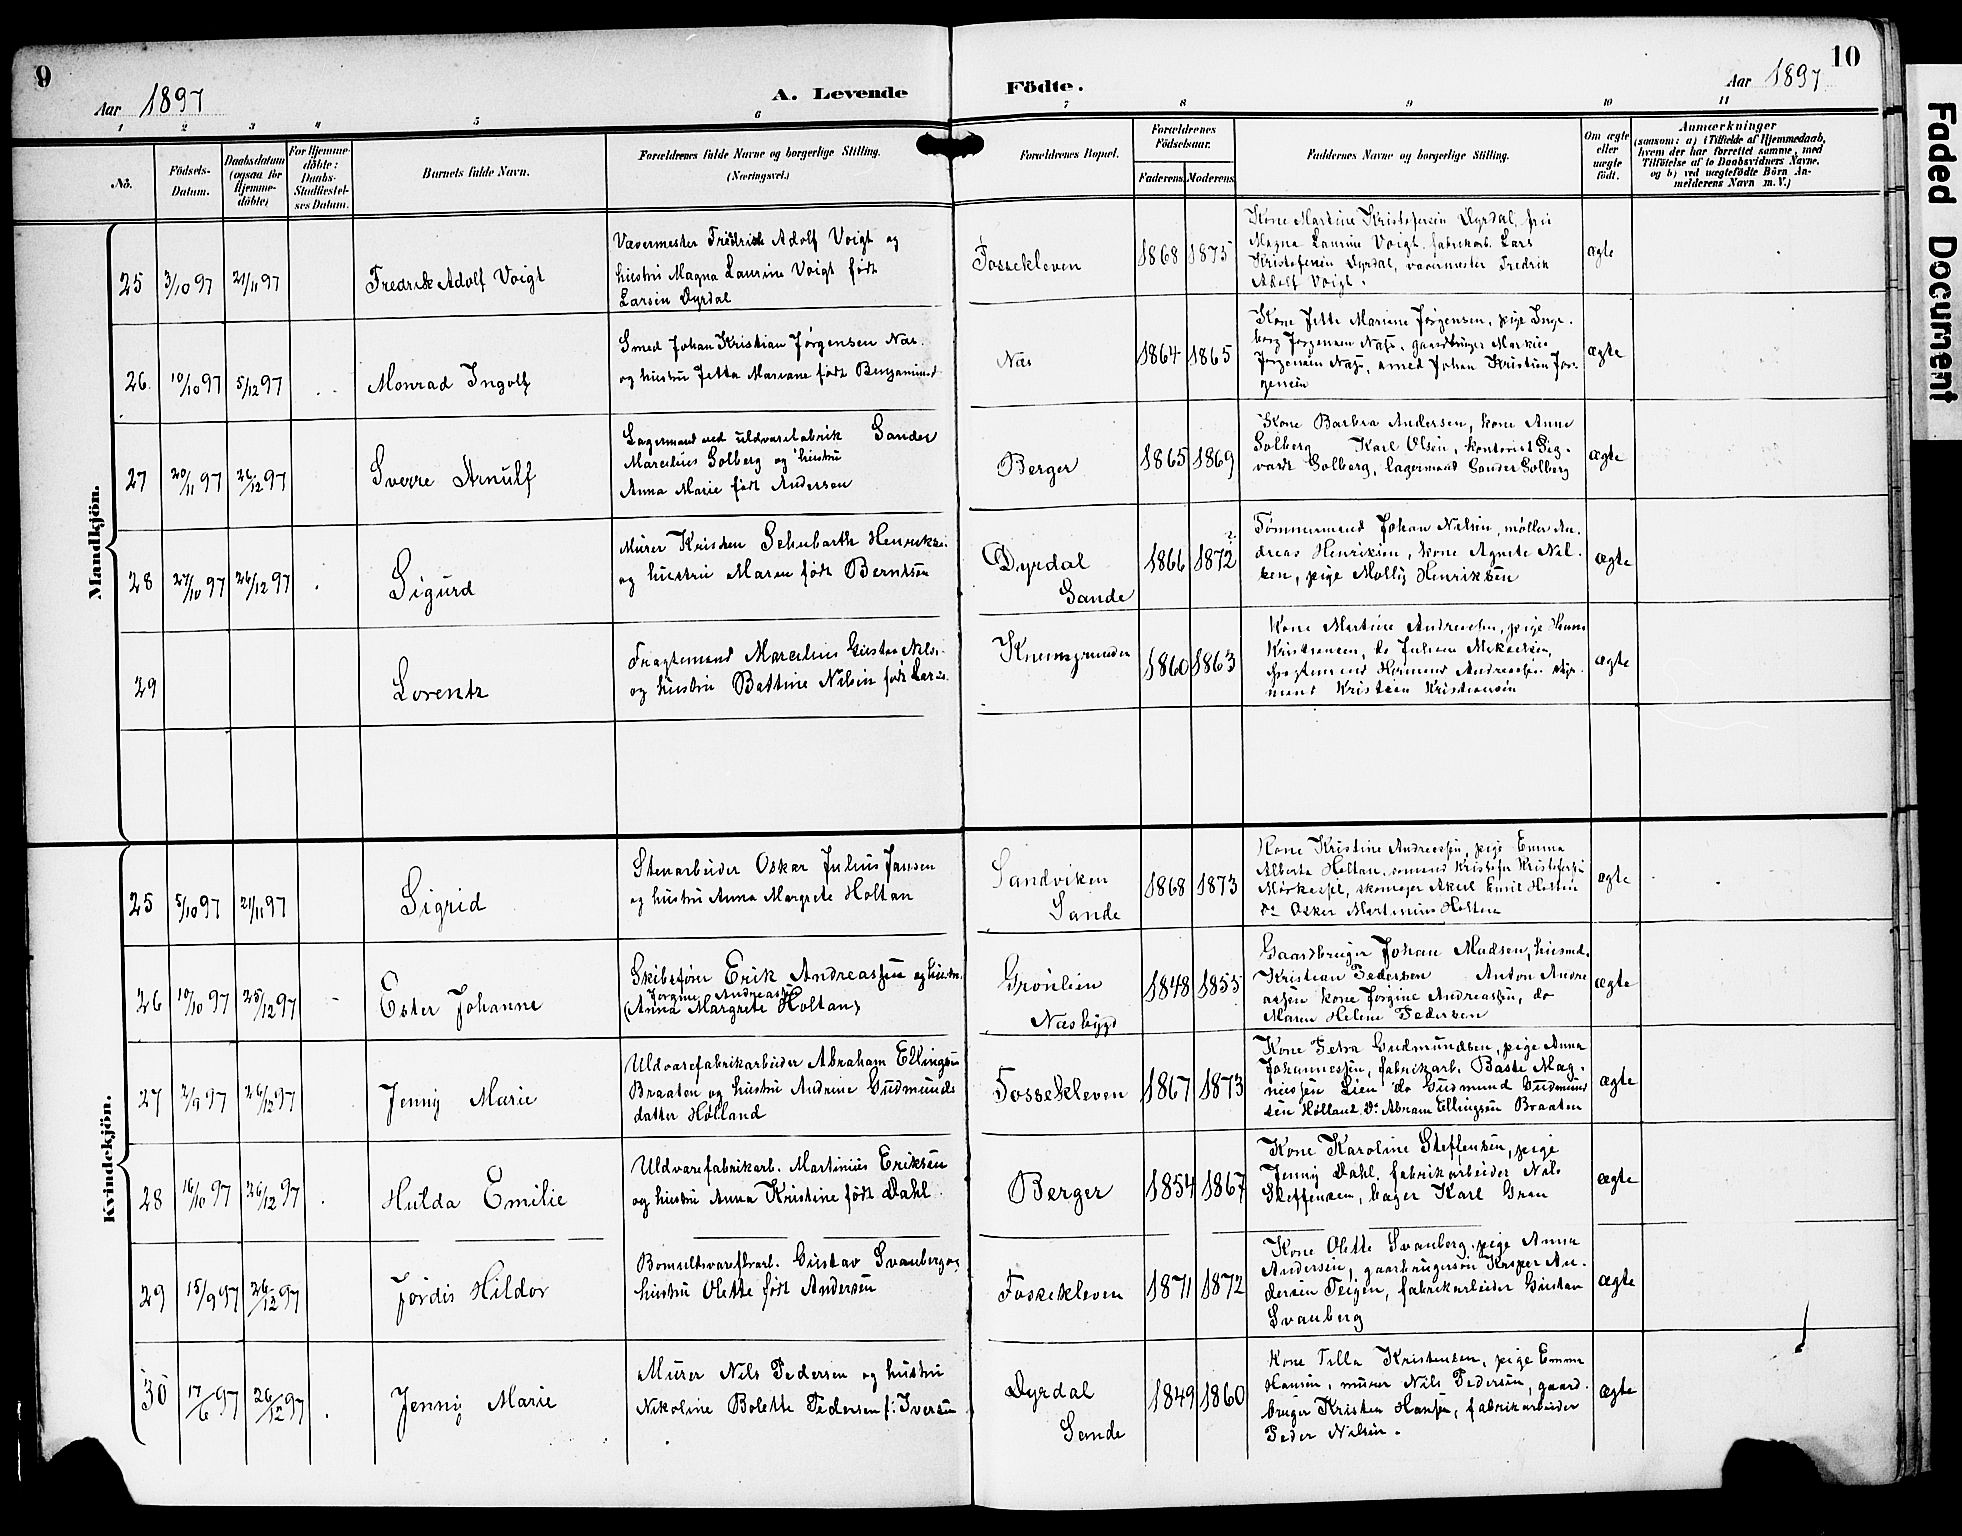 9
10
Aar 1897
A. Levende
Födte.
Aar 1897
1 2 3 4 5 6 7 8 9 10 11
No.
Födsels-
Datum.
Daabsdatum
(ogsaa for
Hjemme-
döbte)
For Hjemme-
döbte:
Daabs-
Stadfæstel-
ses Datum.
Barnets fulde Navn.
Forældrenes fulde Navne og borgerlige Stilling.
(Næringsvei.)
Forældrenes Bopæl.
Forældrenes
Födselsaar.
Faderens.
Moderens.
Faddernes Navne og borgerlige Stilling.
Om ægte
eller
uægte
födt.
Anmærkninger
(saasom: a) i Tilfælde af Hjemmedaab,
hvem der har forrettet samme, med
Tilföielse af to Daabsvidners Navne,
og b) ved uægtefödte Börn An-
melderens Navn m. V.)
Mandkjön.
25
3/10 97
21/11 97
Fredrik Adolf Voigt
Vævermester Fredrik Adolf Voigt og
hustru Magna Laurine Voigt født
Larsen Dyrdal
Fossekleven
1868
1875
Kone Martine Kristofersen Dyrdal, frü
Magna Laurine Voigt, fabrikarb. Lars
Kristofersen Dyrdal, vævermester Fredrik
Adolf Voigt.
ægte
26.
10/10 97
5/12 97
Monrad Ingolf
Smed Johan Kristian Jørgensen Næs
og hustru Jetta Mariane født Benjamins
Næs
1864
1865
Kone Jette Mariane Jørgensen, pige Inge-
borg Jørgensen Næss, gaardbruger Markus
Jørgensen Næss, smed Johan Kristian Jør-
gensen
ægte
27
20/11 97
26/12 97
Sverre Arnulf
Lagermand ved uldvarefabrik Sander
Marcelius Solberg og hustru
Anna Marie født Andersen
Berger
1865
1869
Kone Barbra Andersen, kone Anne
Solberg Karl Olsen, kontorist Sig-
vardt Solberg, lagermand Sander Solberg
ægte
28
27/10 97
26/12 97
Sigurd
Murer Kristen Schubarth Henriks.
og hustru Maren født Berntsen
Dyrdal
Sande
1866
1872
?
Tømmermand Johan Nilsen, møller An-
dreas Henriksen, kone Agnete Nil-
sen, pige Molly Henriksen
ægte
29
Lorentz
Fragtemand Marcelius Gustav Nils.
og hustru Battine Nilsen født Lars.
1860
1863
Kone Martine Andreasen, pige Hanna
Kristiansen, do Juliane Mikaelsen,
fragtemand Herman Andreassen
Kristian Kristiansen
ægte
Kvindekjön.
25
5/10 97
21/11 97
Sigrid
Stenarbeider Oskar Julius Jansen
og hustru Anna Margrete Holtan
Sandviken
Sande
1868
1873
Kone Kristine Andreassen, pige Emma
Alberta Holtan, sømand Kristofer Kristofersen
skomager Aksel Emil Holten
do Osker Martinius Holten
ægte
26
10/10 97
25/12 97
Ester Johanne
Skibsfører Erik Andreassen og hustru
Jørgine Andreassen
(Anna Margrete Holtan)
Grønlien
Næsbygd
1848
1855
Gaardbruger Johan Madsen, husmd.
Kristian Pedersen Anton Andre
assen kone Jørgine Andreassen, do
Maren Helene Pedersen
ægte
27
2/9 97
26/12 97
Jenny Marie
Uldvarefabrikarbeider Abraham Ellingsen
Braaten og hustru Andrine Gudmunds
datter Hølland
Fossekleven
1867
1873
Kone Petra Gudmundsen, pige Anna
Johannessen, fabrikarb. Baste Mag-
nussen Lien do Gudmund Gudmund
sen Hølland. Do Abram Ellingsen Braaten
ægte
28
16/10 97
26/12 97
Hulda Emilie
Uldvarefabrikarb. Martinius Eriksen
og hustru Anna Kristine født Dahl
Berger
1854
1867
Kone Karoline Steffensen, pige
Jenny Dahl, fabrikarbeider Nils
Steffensen, bager Karl Gran
ægte
29
15/9 97
26/12 97
Jørdis Hildor
Bomuldsvarefbrarb. Gustav Svanberg og
hustru Olette født Andersen
Fossekleven
1871
1872
Kone Olette Svanberg, pige Anna
Andersen, gaarbrugersøn Kasper An-
dersen Teigen, fabrikarbeider Gustav
Svanberg
ægte
30
17/6 97
26/12 97
Jenny Marie
Murer Nils Pedersen og hustru
Nikoline Bolette Pedersen f: Iversen
Dyrdal
Sande
1849
1860
Kone Tilla Kristensen, pige Emma
Hansen, murer Nils Pedersen, gaard-
bruger Kristen Hansen, fabrikarbeider
Peder Nilsen.
ægte
Faded Document